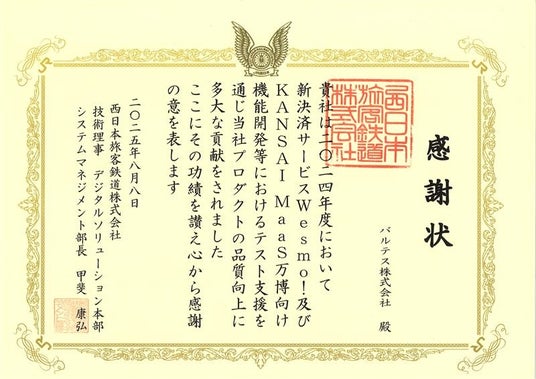 感謝状
バルテス株式会社 殿
貴社は二〇二四年度において
新決済サービスWesmo!及び
KANSAI MaaS万博向け
機能開発等におけるテスト支援を
通じ当社プロダクトの品質向上に
多大な貢献をされました
ここにその功績を讃え心から感謝
の意を表します
二〇二五年八月八日
西日本旅客鉄道株式会社
技術理事 デジタルソリューション本部
システムマネジメント部長 甲斐 康弘
西日本
旅客鉄道
株式会社